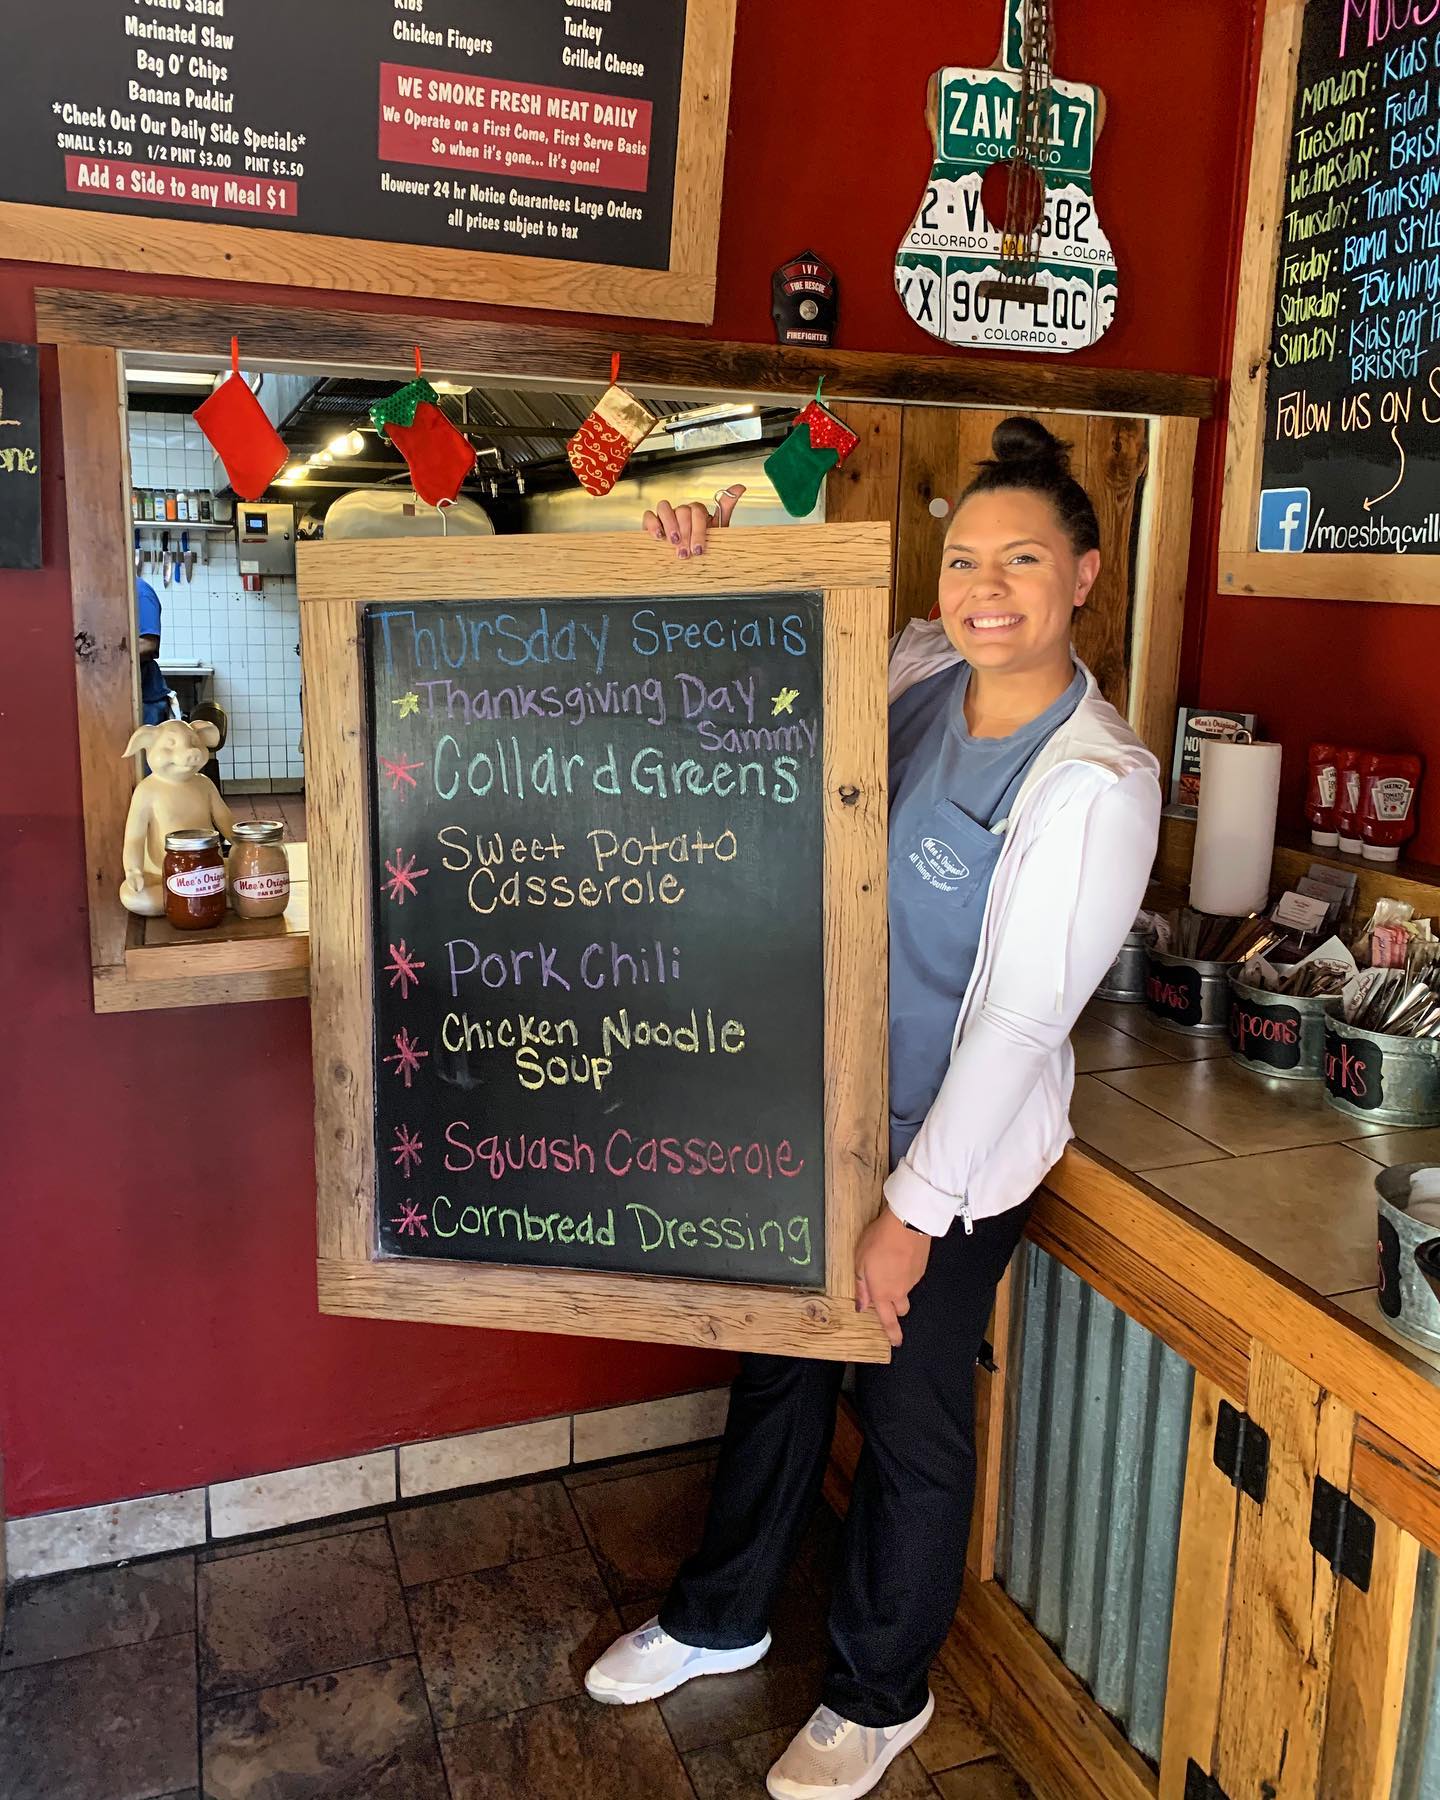 Potato Salad
Marinated Slaw
Bag O' Chips
Banana Puddin'
*Check Out Our Daily Side Specials*
SMALL $1.50 1/2 PINT $3.00 PINT $5.50
Add a Side to any Meal $1
Ribs
Chicken Fingers
Chicken
Turkey
Grilled Cheese
WE SMOKE FRESH MEAT DAILY
We Operate on a First Come, First Serve Basis
So when it's gone... It's gone!
However 24 hr Notice Guarantees Large Orders
all prices subject to tax
IVY
FIRE RESCUE
FIREFIGHTER
COLORADO
582
COLORADO
COLORA
907 LQC
COLORADO
Monday: Kids
Tuesday: Fried
Wednesday:
Thursday:
Friday: Bama Style
Saturday: 75¢ Wing
Sunday: Kids eat
Brisket
Follow us on
f/moesbbqcvill
Thursday Specials
Thanksgiving Day
Sammy
Collard Greens
Sweet Potato
Casserole
Pork Chili
Chicken Noodle
Soup
Squash Casserole
Cornbread Dressing
Moe's Original
BAR B QUE
All Things Southern
Moe's Origi
BAR B QUE
Moe's Origin
BAR B QUE
Moe's Original
HEINZ
TOMATO
KETCHUP
Spoons